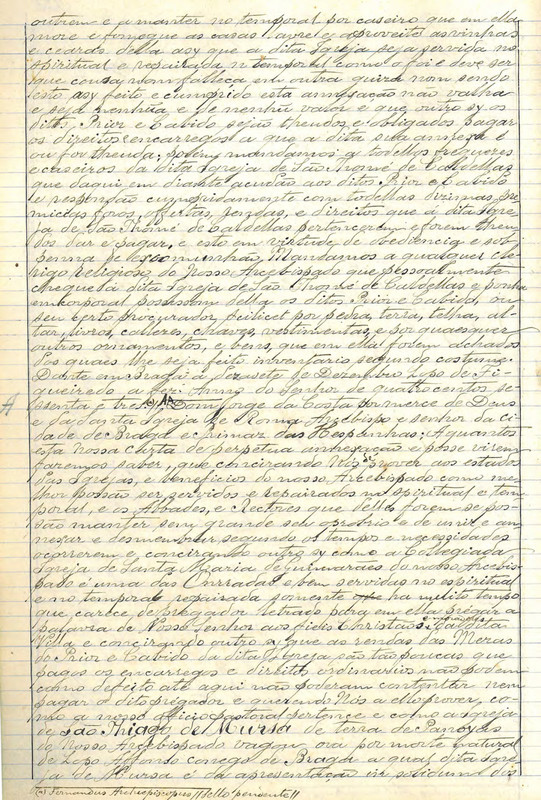 outrem e a manter no temporal por caseiro que em ella
more e fomegue as casas lavre e aproveite as vinhas
e cearas della asy que a dita Igreja seja servida no
spiritual e repairada n temporal como o foi e deve ser
que cousa nom falleça em outra quira nom sendo
esto asy feito e cumprido esta annexação não valha
e seja nenhũa e de nenhũ valor e que outro sy os
ditos Prior e Cabido sejão theudos e obligados pagar
os direitos encarregos a que a dita sua annexa é
ou for theuda; porem mandamos a todollos freguezes
e caseiros da dita Igreja de São Thomé de Caldellas
que daqui em diante acudão aos ditos Prior e Cabido
e respondão cumpridamente com todallas dizimas, pre
micias foros, offertas, rendas, e direitos que á dita Igre
ja de São Thomé de Caldellas pertencerem e forem theu
dos dar e pagar, e esto em virtude de obediencia e sob
penna de excomunhão, Mandamos a qualquer cle
rigo, Religioso do Nosso Arcebispado que pessoalmente
chegue á dita Igreja de São Thomé de Caldellas e ponha
em corporal possessom della os ditos Prior e Cabido, ou
seu certo procurador, scilicet por pedra, terra, telha, al
tar, livros, calleces, chaves, vestimentas, e por quaesquer
outros ornamentos, e bens, que em ella forem achados
dos quaes lhe seja feito inventario segundo costume.
Dante em Braga a dezasete de Dezembro Lopo de Fi-
gueiredo a fez. Anno do Senhor de quatrocentos se
ssenta e tres. (a) Dom Jorge da Costa por merce de Deus
e da Santa Igreja de Roma Arcebispo e senhor da ci
dade de Braga e primaz das Hespanhas: A quantos
esta Nossa carta de perpetua annexação e posse virem
faremos saber, que concirando Nós prover aos estados
das Igrejas, e beneficios do nosso Arcebispado como me
lhor possão ser servidos e repairados no spiritual e tem
poral, e os Abbades, e Rectores que dellas forem se pos-
são manter sem grande seu oprobrio e de unir e an
nexar e desmembrar segundo os tempos e necessidades
ocorrerem e concirando outro sy como a Collegiada
Igreja de Santa Maria de Guimarães do nosso Arcebis-
pado é uma das honrradas e bem servidas no espiritual
e no temporal repairada somente ha muito tempo
que carece de pregador letrado para em ella pregar a
palavra de Nosso Senhor aos fieis Christãos da dita
Villa e concirando outro sy que as rendas das Mesas
do Prior e Cabido da dita Igreja são tão poucas que
pagos os encarregos e direitos ordinarios não podem
como defeito até aqui não poderam contentar nem
pagar o dito pregador e querendo Nós a ello prover, co-
mo a nosso officio pastoral pertence e como a Igreja
de São Thiago de Mursa de terra de Panoyas
do Nosso Arcebispado vagou ora por morte natural
de Lopo Affonso conego de Braga a qual dita Igre
ja de Mursa é da apresentação in solidum dos
(a) Fernandus Archiepiscopus // Sello pendente //